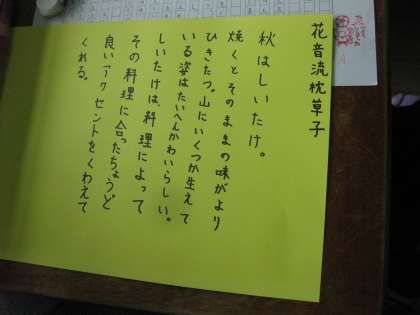 花音流枕草子
秋はしいたけ。
焼くとそのままの味がより
ひきたつ。山にいくつか生えて
いる姿はたいへんかわいらしい。
しいたけは、料理によって
その料理に合ったちょうど
良いアクセントをくわえて
くれる。